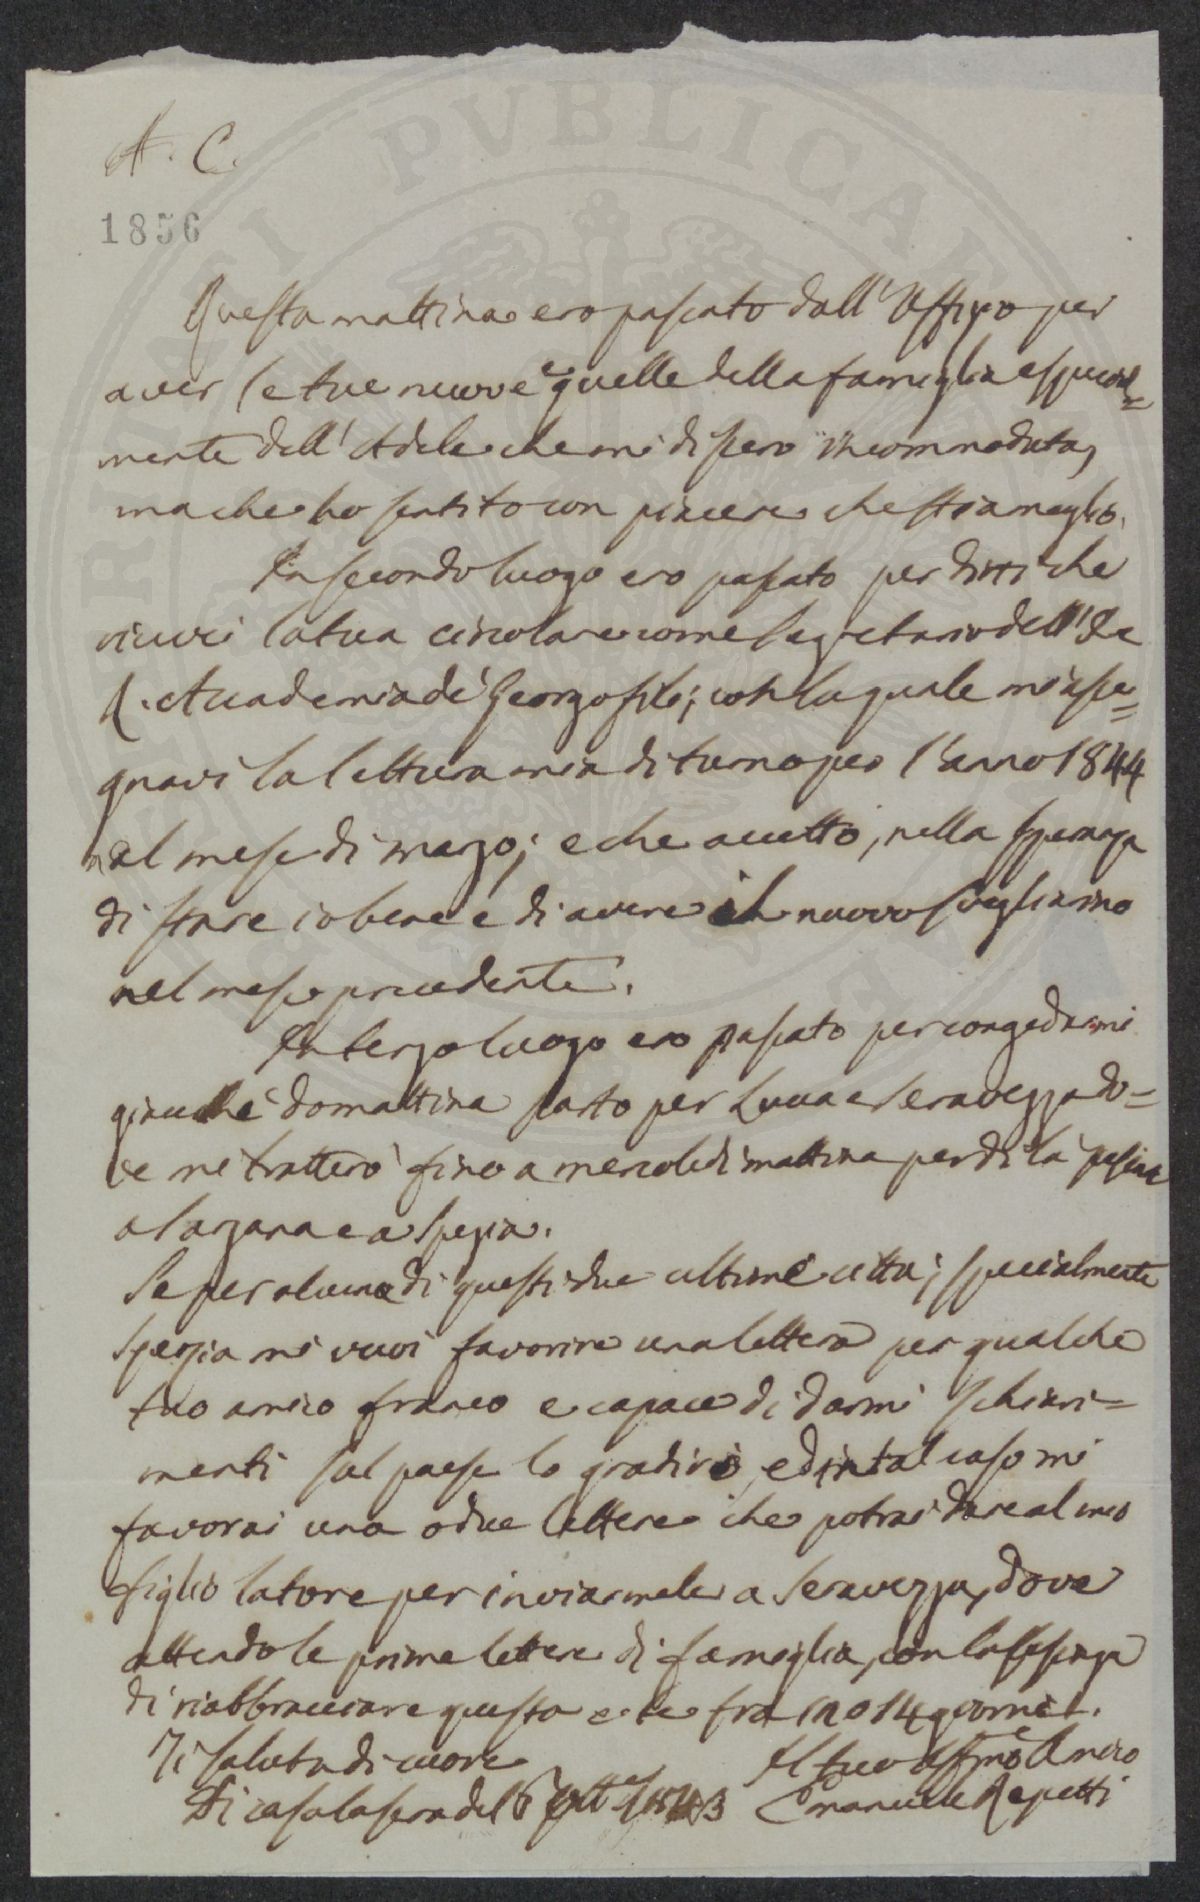 A. C.
1856
Questa mattina ero passato dall'Uffizo per
aver le tue nuove e quelle della famiglia e special=
mente dell'Adele che mi dissero incommodata,
ma che ho sentito con piacere che stia meglio.
In secondo luogo ero passato per dirti che
ricevei la tua circolare come Segretario dell'
R. Accademia de' Georgofili; con la quale mi asse=
gnavi la lettura mia di turno per l'anno 1844
nel mese di marzo; e che accetto, nella speranza
di stare io bene e di avere il nuovo svegliarino
nel mese precedente.
In terzo luogo ero passato per congedarmi
giacché domattina parto per Lucca e Seravezza do=
ve mi tratterò fino a mercoledì mattina per di là passare
a Sarzana e a Spezia.
Se per alcuna di queste due ultime città, specialmente
Spezia mi vuoi favorire una lettera per qualche
tuo amico franco e capace di darmi schiari=
menti sul paese lo gradirò, ed in tal caso mi
favorai una o due lettere che potrai dare al mio
figlio latore per inviarmele a Seravezza, dove
attendo le prime lettere di famiglia, con la
di riabbracciare questa e te fra 12 o 14 giorni.
Ti saluto di cuore
Il tuo Affmo Amico
Di casa la sera del 6 1843
Emanuele Repetti